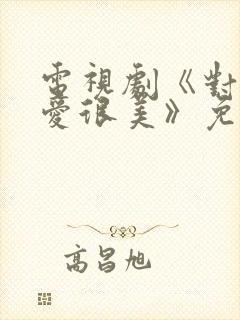 電視劇《對
愛很美》免
高昌旭